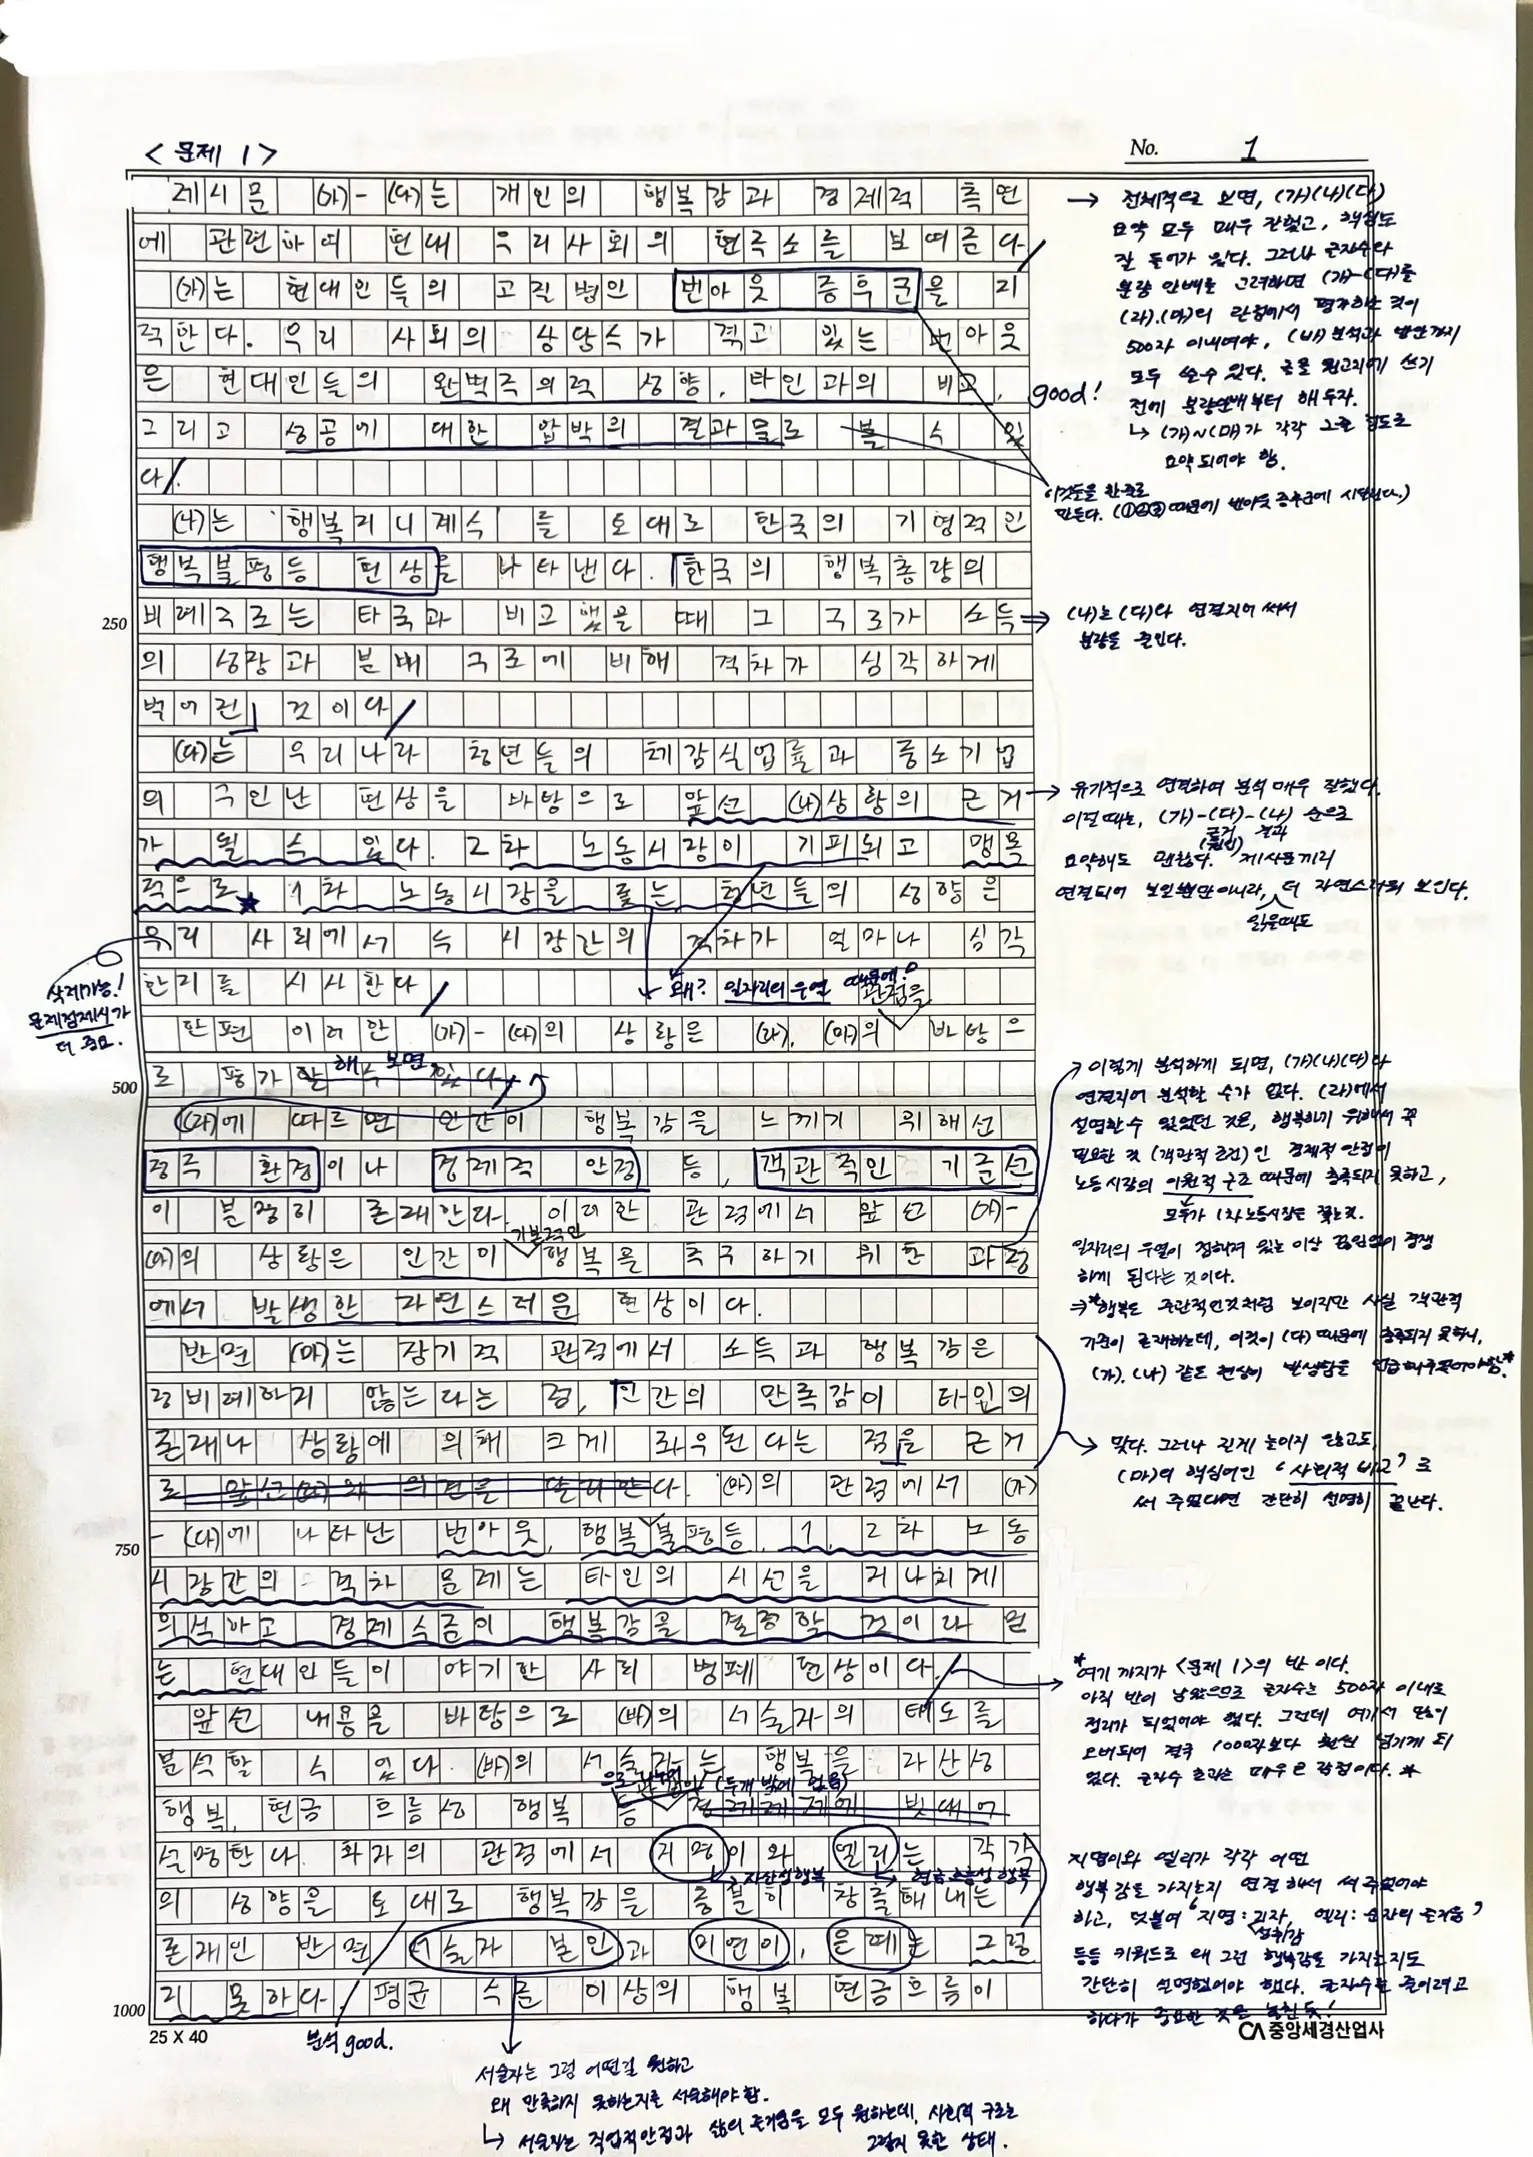 <문제 1>
No. 1
제시문 (가)-(다)는 개인의 행복감과 경제적 측면
에 관련하여 현대 우리사회의 현주소를 보여준다
(가)는 현대인들의 고질병인 번아웃 증후군을 지
적한다. 우리 사회의 상당수가 겪고 있는 번아웃
은 현대인들의 완벽주의적 성향, 타인과의 비교,
그리고 성공에 대한 압박의 결과물로 볼 수 있
다.
(나)는 행복지니계수를 토대로 한국의 기형적인
행복불평등 현상을 나타낸다. 한국의 행복총량의
비례구조는 타국과 비교했을 때 그 구조가 소득
의 성장과 분배 구조에 비해 격차가 심각하게
벌어진 것이다
(다)는 우리나라 청년들의 체감실업률과 중소기업
의 구인난 현상을 바탕으로 앞선 (나)상황의 근거
가 될 수 있다. 2차 노동시장이 기피되고 맹목
적으로 1차 노동시장을 좇는 청년들의 성향은
우리 사회에서 두 시장간의 격차가 얼마나 심각
한지를 시사한다
한편 이러한 (가)-(다)의 상황은 (라), (마)의 관점을 바탕으
로 평가할 수 있다 해 보면,
(라)에 따르면 인간이 행복감을 느끼기 위해선
정주 환경이나 경제적 안정 등, 객관적인 기준선
이 분명히 존재한다. 이러한 관점에서 앞선 (가)-
(다)의 상황은 인간이 기본적인 행복을 추구하기 위한 과정
에서 발생한 자연스러운 현상이다.
반면 (마)는 장기적 관점에서 소득과 행복감은
정비례하지 않는다는 점, 인간의 만족감이 타인의
존재나 상황에 의해 크게 좌우된다는 점을 근거
로 앞선 (라)와 의견을 달리한다. (마)의 관점에서 (가)
-(다)에 나타난 번아웃, 행복 불평등, 1, 2차 노동
시장간의 격차 문제는 타인의 시선을 지나치게
의식하고 경제수준이 행복감을 결정할 것이라 믿
는 현대인들이 야기한 사회 병폐 현상이다.
앞선 내용을 바탕으로 (바)의 서술자의 태도를
분석할 수 있다. (바)의 서술자는 행복을 자산성
행복, 현금 흐름성 행복 등
설명한다. 화자의 관점에서 지명이와 엘리는 각각
의 성향을 토대로 행복감을 충분히 창출해 내는
존재인 반면 서술자 본인과 미연이, 은혜는 그렇
지 못하다. 평균 수준 이상의 행복 현금흐름이
250
500
750
1000
25 X 40
CA 중앙세경산업사
→ 전체적으로 보면, (가)(나)(다)
요약 모두 매우 잘했고, 핵심도
잘 들어가 있다. 그러나 글자수와
분량 안배를 고려하면 (가)-(다)를
(라).(마)의 관점에서 평가하는 것이
500자 이내여야, (바) 분석과 방안까지
모두 쓸수 있다. 글을 원고지에 쓰기
전에 분량안배부터 해 두자.
↳ (가)~(마)가 각각 2~3줄 정도로
요약 되어야 함.
good!
이것들을 한 줄로
만든다. (①②③ 때문에 번아웃 증후군에 시달린다.)
(나)는 (다)와 연결지어 써서
분량을 줄인다.
유기적으로 연결하여 분석 매우 잘했다.
이럴 때는, (가)-(다)-(나) 순으로
근거 결과
요약해도 괜찮다. 제시문끼리
연결되어 보일뿐만 아니라, 더 자연스러워 보인다.
읽을때도
삭제가능!
문제점제시가
더 중요.
왜? 일자리의 우열 때문에?
이렇게 분석하게 되면, (가)(나)(다)다
연결지어 분석할 수가 없다. (라)에서
설명할수 있었던 것은, 행복하기 위해서 꼭
필요한 것 (객관적 조건)인 경제적 안정이
노동 시장의 이원적 구조 때문에 충족되지 못하고,
모두가 1차 노동시장은 좇는것.
일자리의 우열이 정해져 있는 이상 끊임없이 경쟁
하게 된다는 것이다.
⇒ *행복도 주관적인것처럼 보이지만 사실 객관적
기준이 존재하는데, 이것이 (다) 때문에 충족되지 못하니,
(가).(나) 같은 현상이 발생함을 언급해주었어야함.*
맞다. 그러나 길게 늘이지 않고도,
(마)의 핵심어인 '사회적 비교'로
써 주었다면 간단히 설명히 끝난다.
*여기 까지가 <문제 1>의 반 이다.
아직 반이 남았으므로 글자수는 500자 이내로
정리가 되었어야 했다. 그런데 여기서 많이
오버되어 결국 1000자보다 훨씬 넘기게 되
었다. 글자수 초과는 매우 큰 감점이다.*
(두개 밖에 없음)
→ 자산성행복
→ 현금흐름성 행복
지명이와 엘리가 각각 어떤
행복감을 가지는지 연결해서 써 주었어야
하고, 덧붙여 '지명: 기자, 성취감 엘리: 순간의 즐거움'
등등 키워드로 왜 그런 행복감을 가지는지도
간단히 설명했어야 했다. 글자수를 줄이려고
하다가 중요한 것을 놓친 듯!
분석 good.
서술자는 그럼 어떤걸 원하고
왜 만족하지 못하는지를 서술해야 함.
↳ 서술자는 직업적안정과 삶의 즐거움을 모두 원하는데, 사회적 구조는
그렇지 못한 상태.